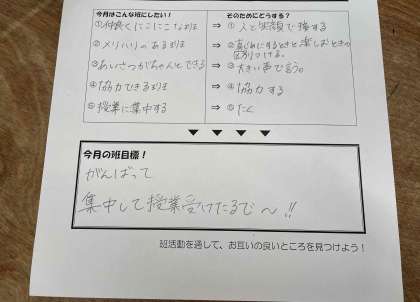 今月はこんな班にしたい! そのためにどうする?
①仲良くにこにこな班 ⇒ ① 人と笑顔で接する
②メリハリのある班 ⇒ ② 真じめにするときと楽しむときの区別つける。
③あいさつがちゃんとできる ⇒ ③ 大きい声で言う。
④協力できる班 ⇒ ④ 協力する
⑤授業に集中する ⇒ ⑤
▼ ▼ ▼ ▼
今月の班目標!
がんばって
集中して授業受けたるで〜!!
班活動を通して、お互いの良いところを見つけよう!